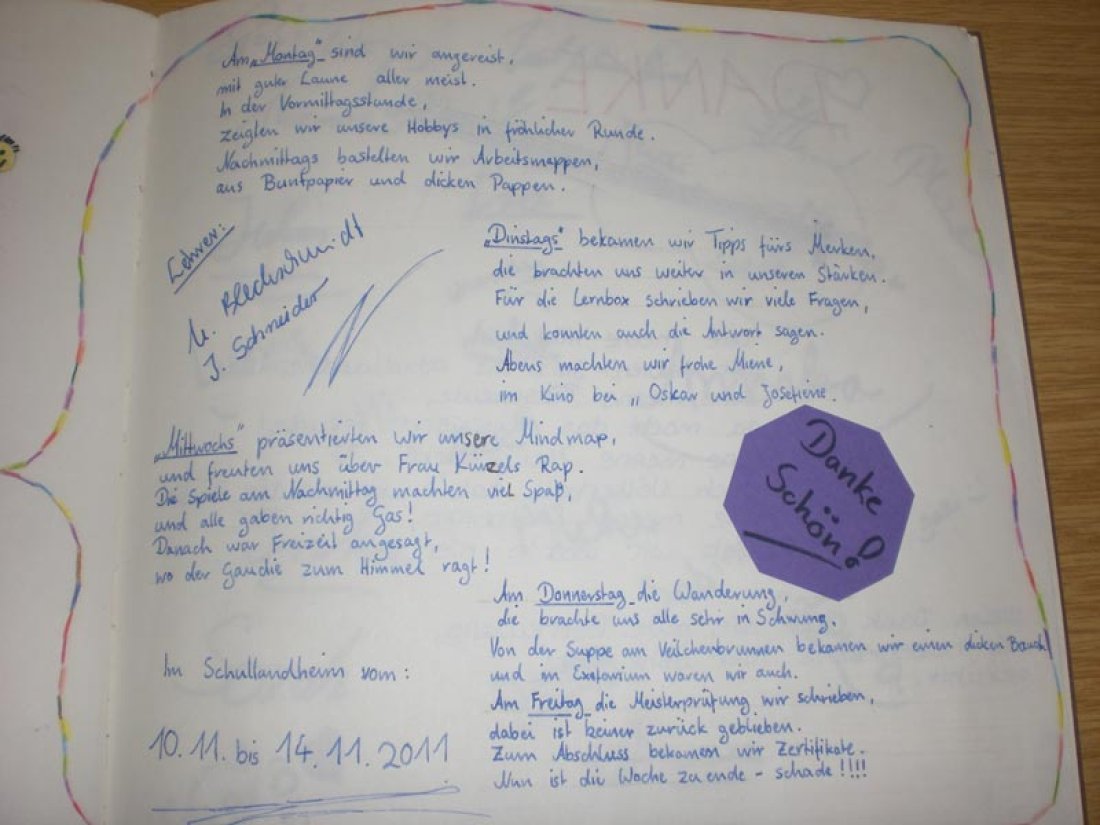 Am „Montag“ sind wir angereist,
mit guter Laune aller meist.
In der Vormittagsstunde,
zeigten wir unsere Hobbys in fröhlicher Runde.
Nachmittags bastelten wir Arbeitsmappen,
aus Buntpapier und dicken Pappen.
Lehrer:
U. Blechschmidt
J. Schneider
„Dinstags“ bekamen wir Tipps fürs Merken,
die brachten uns weiter in unseren Stärken.
Für die Lernbox schrieben wir viele Fragen,
und konnten auch die Antwort sagen.
Abens machten wir frohe Miene,
im Kino bei „Oskar und Josefiene.
„Mittwochs“ präsentierten wir unsere Mindmap,
und freuten uns über Frau Künzels Rap.
Die Spiele am Nachmittag machten viel Spaß,
und alle gaben richtig Gas!
Danach war Freizeit angesagt,
wo der Gaudie zum Himmel ragt!
Danke
Schön!
Am Donnerstag die Wanderung,
die brachte uns alle sehr in Schwung.
Von der Suppe am Veilchenbrunnen bekamen wir einen dicken Bauch
und im Exatorium waren wir auch.
Am Freitag die Meisterprüfung wir schrieben,
dabei ist keiner zurück geblieben.
Zum Abschluss bekamen wir Zertifikate.
Nun ist die Woche zu ende - schade!!!!
Im Schullandheim vom:
10.11. bis 14.11.2011